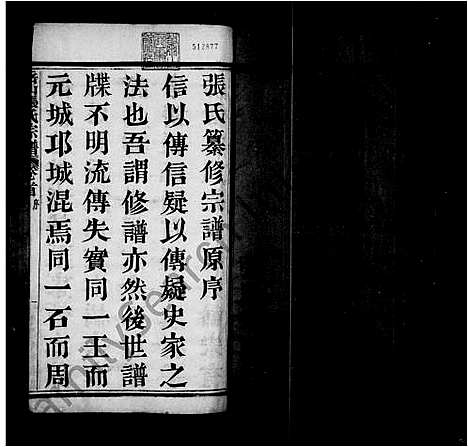 張氏纂修宗譜原序
信以傳信疑以傳疑史家之
法也吾謂修譜亦然後世譜
牒不明流傳失實同一王而
元城邛城混焉同一石而周
512877